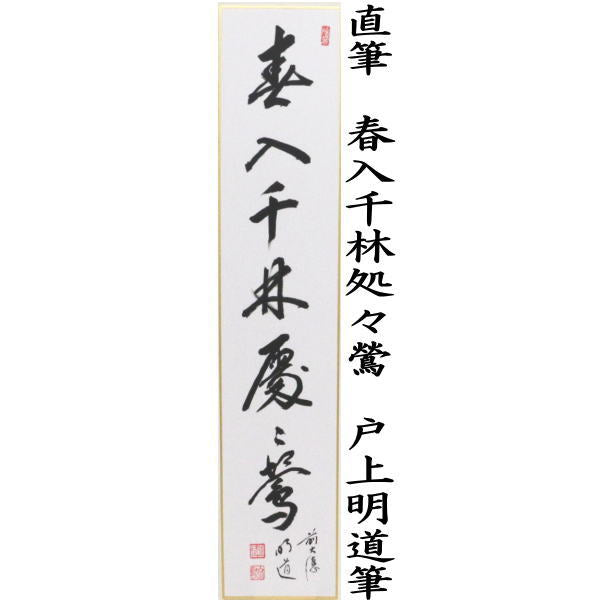 直筆 春入千林処々鶯 戸上明道筆
春入千林處〻鶯
前大徳
明道